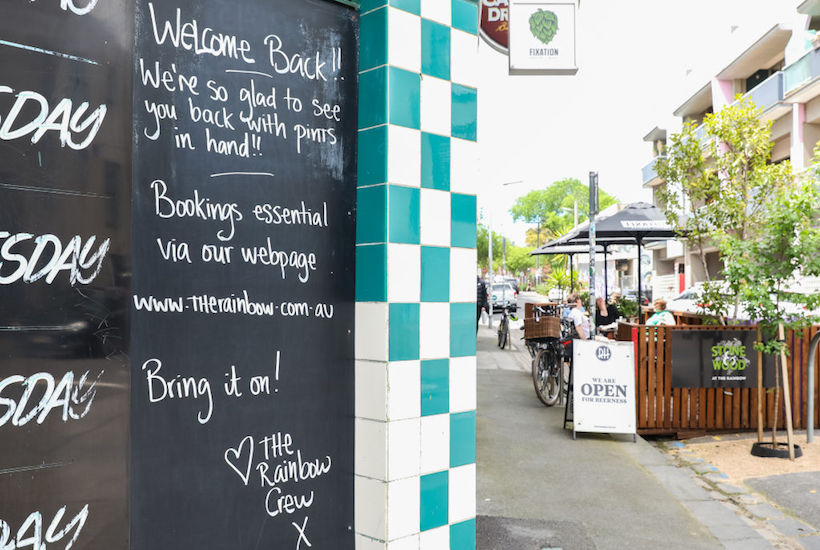 DAY
Welcome Back!!
We're so glad to see
you back with pints
in hand!!
Bookings essential
via our webpage
www.therainbow.com.au
Bring it on!
♡ THE
Rainbow
Crew
X
SDAY
ESDAY
SDAY
DAY
FIXATION
RH
WE ARE
OPEN
FOR BEERNESS
STONE &
WOOD
AT THE RAINBOW